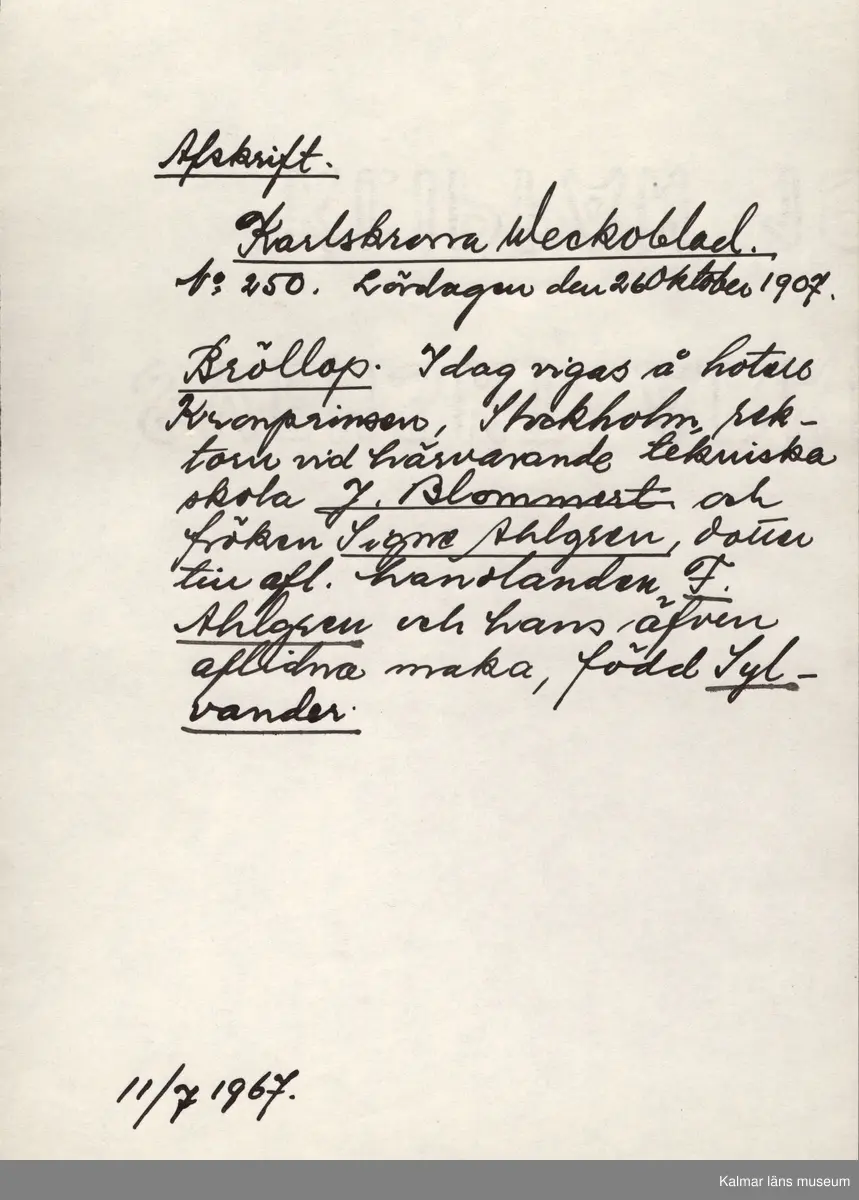 Afskrift.
Karlskrona Weckoblad.
No 250. Lördagen den 26 Oktober 1907.
Bröllop. I dag vigas å hotell
Kronprinsen, Stockholm, rek-
torn vid härvarande tekniska
skola J. Blommert och
fröken Signe Ahlgren, dotter
till afl. handlanden F.
Ahlgren och hans äfven
aflidna maka, född Syl-
vander.
11/7 1967.
Kalmar läns museum